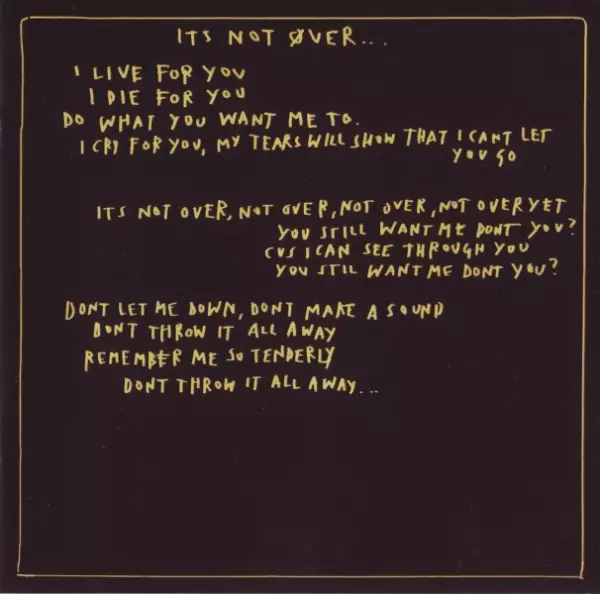 ITS NOT ØVER...
I LIVE FOR YOU
I DIE FOR YOU
DO WHAT YOU WANT ME TO.
I CRY FOR YOU, MY TEARS WILL SHOW THAT I CANT LET
YOU GO
ITS NOT OVER, NOT OVER, NOT OVER, NOT OVER YET
YOU STILL WANT ME DONT YOU?
CUS I CAN SEE THROUGH YOU
YOU STIL WANT ME DONT YOU?
DONT LET ME DOWN, DONT MAKE A SOUND
DONT THROW IT ALL AWAY
REMEMBER ME SO TENDERLY
DONT THROW IT ALL AWAY...